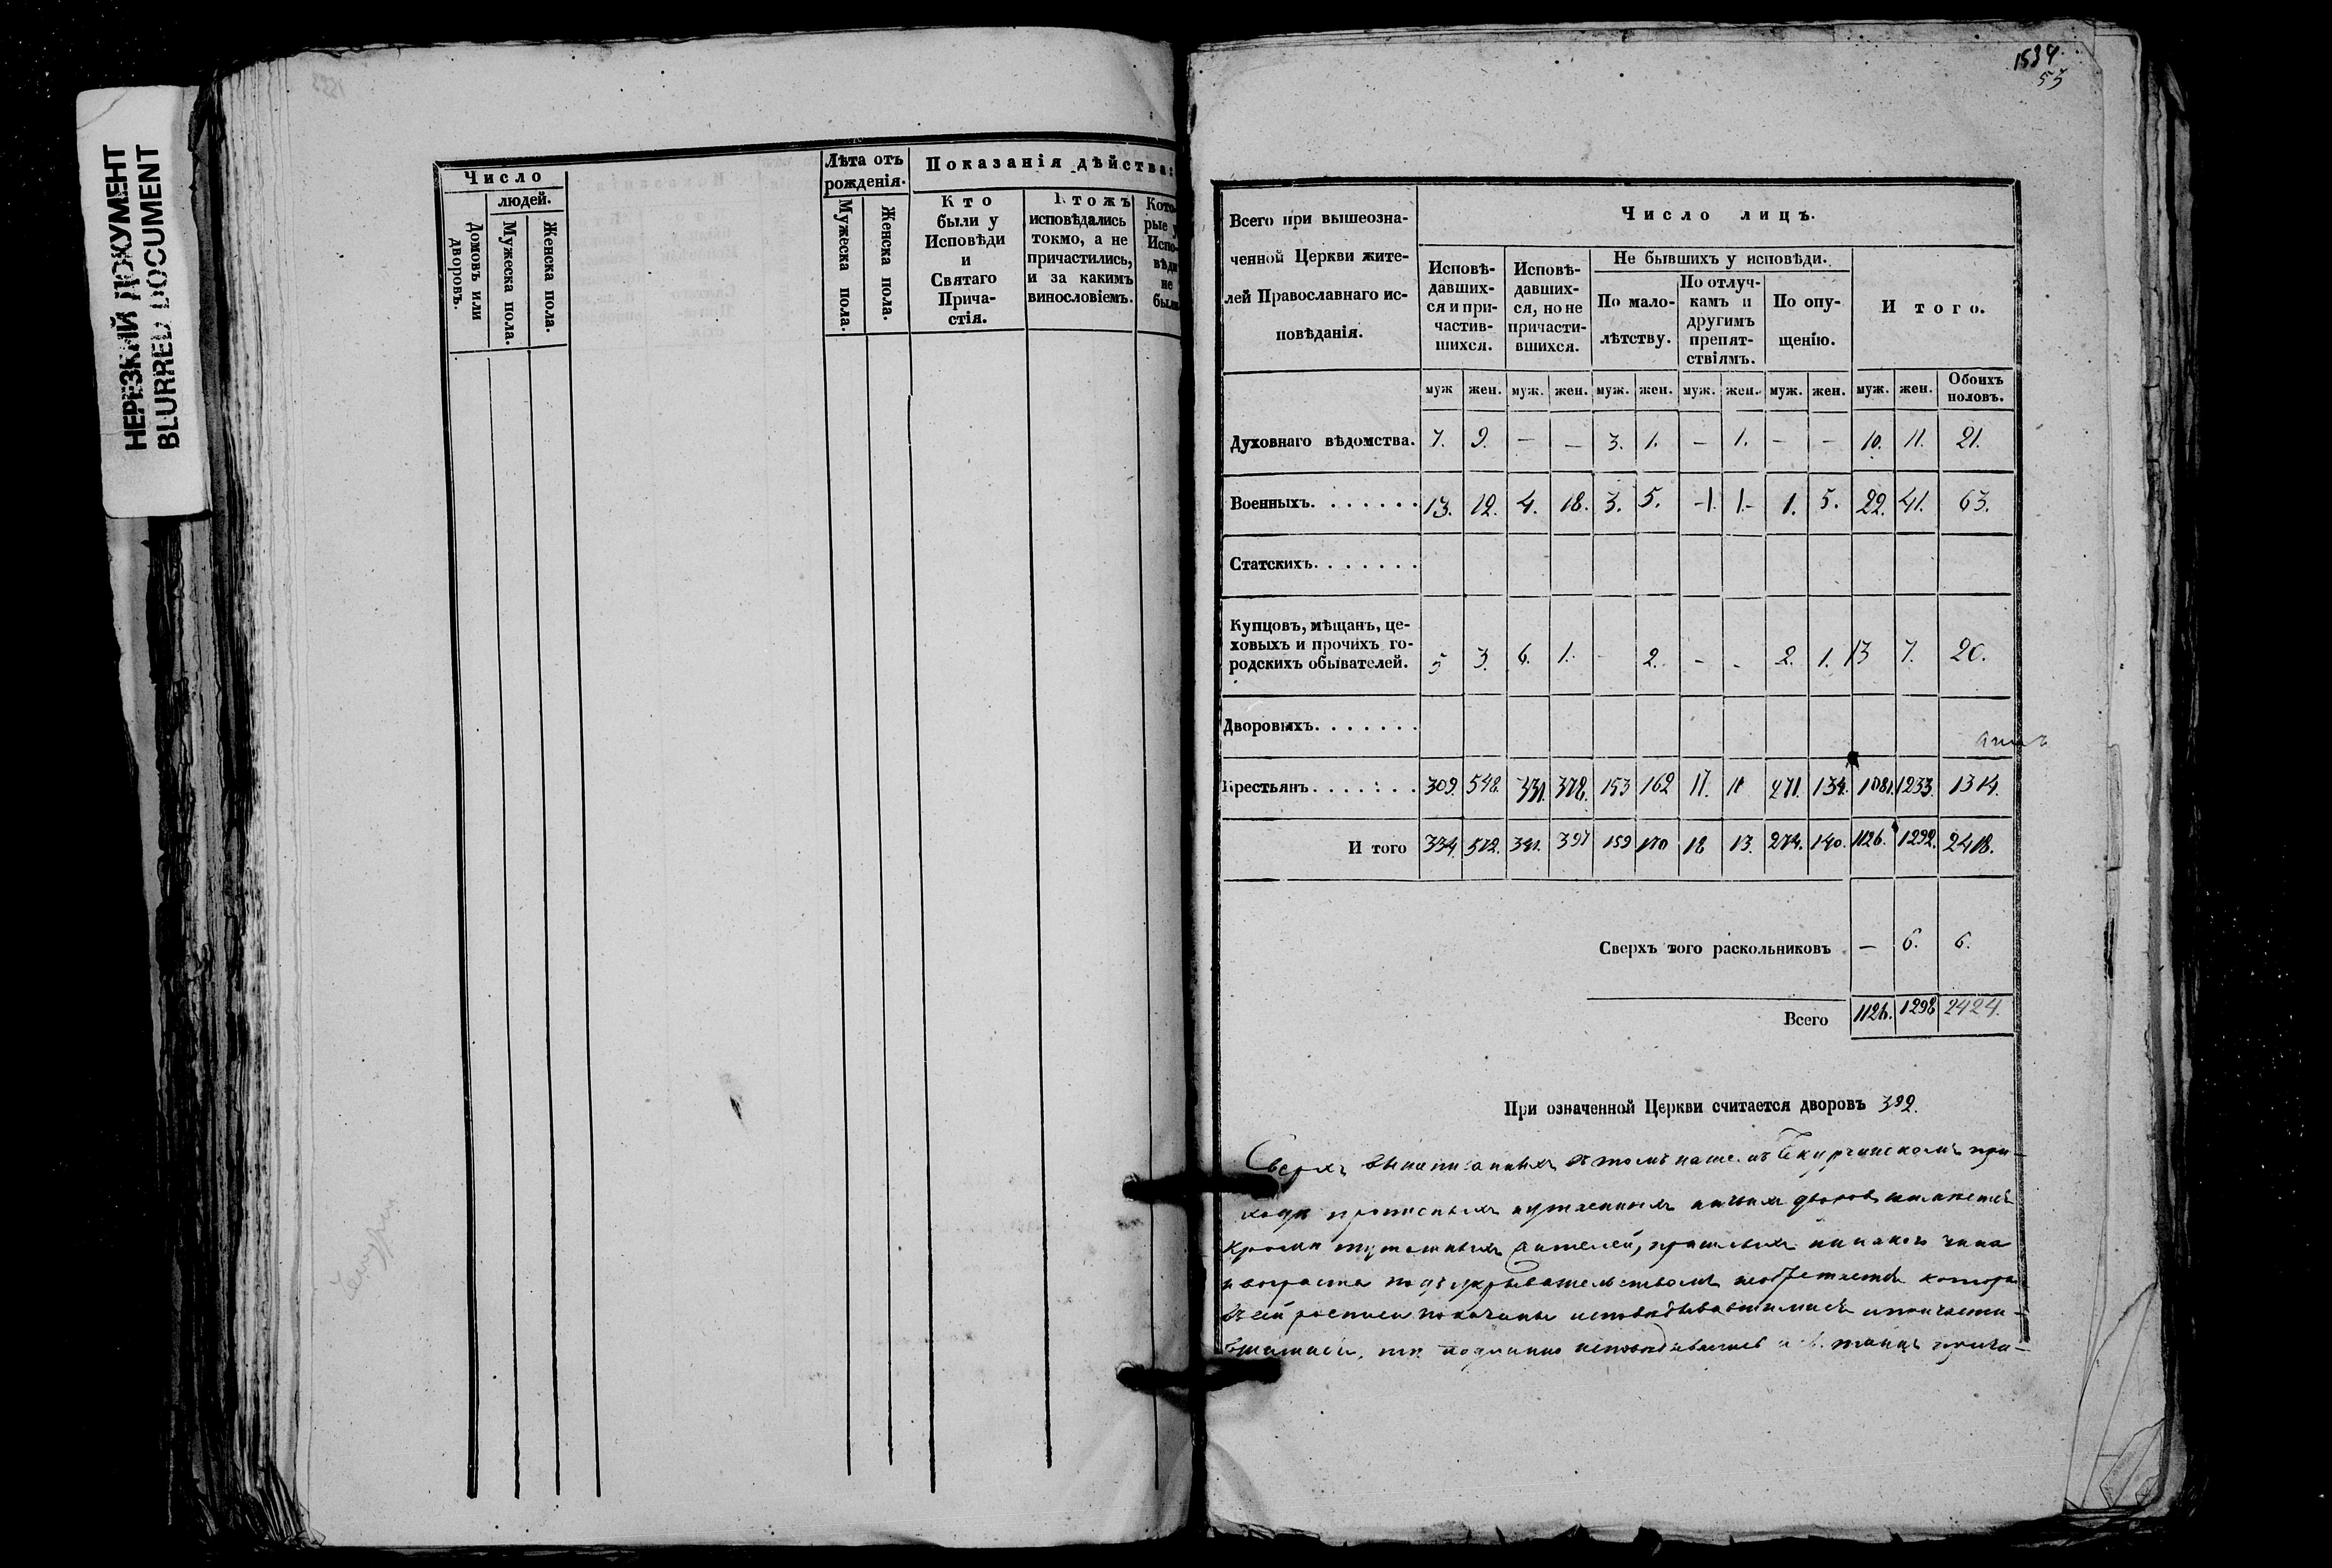 НЕРЕЗКИЙ ДОКУМЕНТ
BLURRED DOCUMENT
Число
людей.
Домовъ или дворовъ.
Мужеска пола.
Женска пола.
Лѣта отъ рожденія.
Мужеска пола.
Женска пола.
Показанія дѣйства:
Кто
были у
Исповѣди
и
Святаго
Прича-
стія.
Ктожъ
исповѣдались
токмо, а не
причастились,
и за какимъ
винословіемъ.
Кото-
рые у
Испо-
вѣди
не
были
1534.
53
Всего при вышеозна-
ченной Церкви жите-
лей Православнаго ис-
повѣданія.
Число лицъ.
Исповѣ-
давших-
ся и при-
частив-
шихся.
Исповѣ-
давших-
ся, но не
причасти-
вшихся.
Не бывшихъ у исповѣди.
По мало-
лѣтству.
По отлуч-
камъ и
другимъ
препят-
ствіямъ.
По опу-
щенію.
И того.
муж жен. муж. жен. муж. жен. муж. жен. муж. жен. муж. жен. Обоихъ половъ.
Духовнаго вѣдомства. 7. 9. — — 3. 1. — 1. — — 10. 11. 21.
Военныхъ. . . . . . . 13. 12. 4. 18. 3. 5. -1. 1.- 1. 5. 22. 41. 63.
Статскихъ. . . . . . .
Купцовъ, мѣщанъ, це-
ховыхъ и прочихъ го-
родскихъ обывателей. 5 3. 6. 1. - 2. - - 2. 1. 13 7. 20.
Дворовыхъ. . . . . . .
Крестьянъ . . . . : . . 309. 548. 331. 378. 153 162 17. 11 271. 134. 1081. 1233. 1314.
И того 334. 572. 341. 397 159 170 18 13. 274. 140. 1126. 1292. 2418.
Сверхъ того раскольниковъ — 6. 6.
Всего 1126. 1298 2424.
При означенной Церкви считается дворовъ 392.
Сверхъ вышеписанныхъ въ томъ нашемъ при-
ходѣ прописныхъ и утаенныхъ дворовъ
кромѣ жителей, никакого чина
и возраста под укрывательствомъ
въ сей росписи показаны исповѣдывавшимися и причасти-
вшимися, тѣ подлинно исповѣдывались и св. таинъ прича-